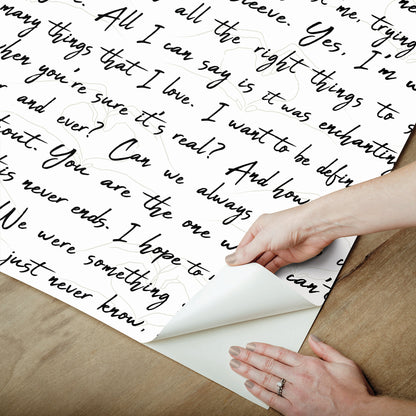 sleeve. Yes, I'm w
me, trying
All I can say is it was enchanting
all the right things to s
many things that I love. I want to be defin
when you're sure it's real? And how
r and ever? Can we always
tout. You are the one w
is never ends. I hope to
We were something, can't
just never know.